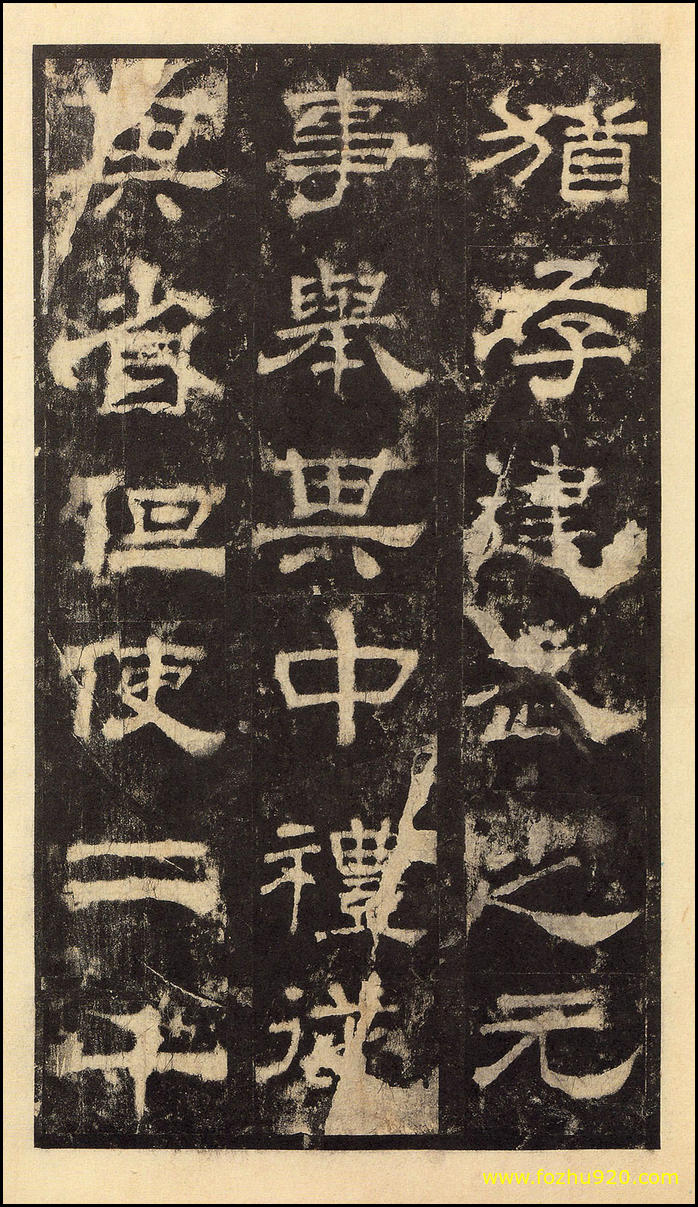 猶存建武之元
事舉其中禮從
其省但使二千
www.fozhu920.com